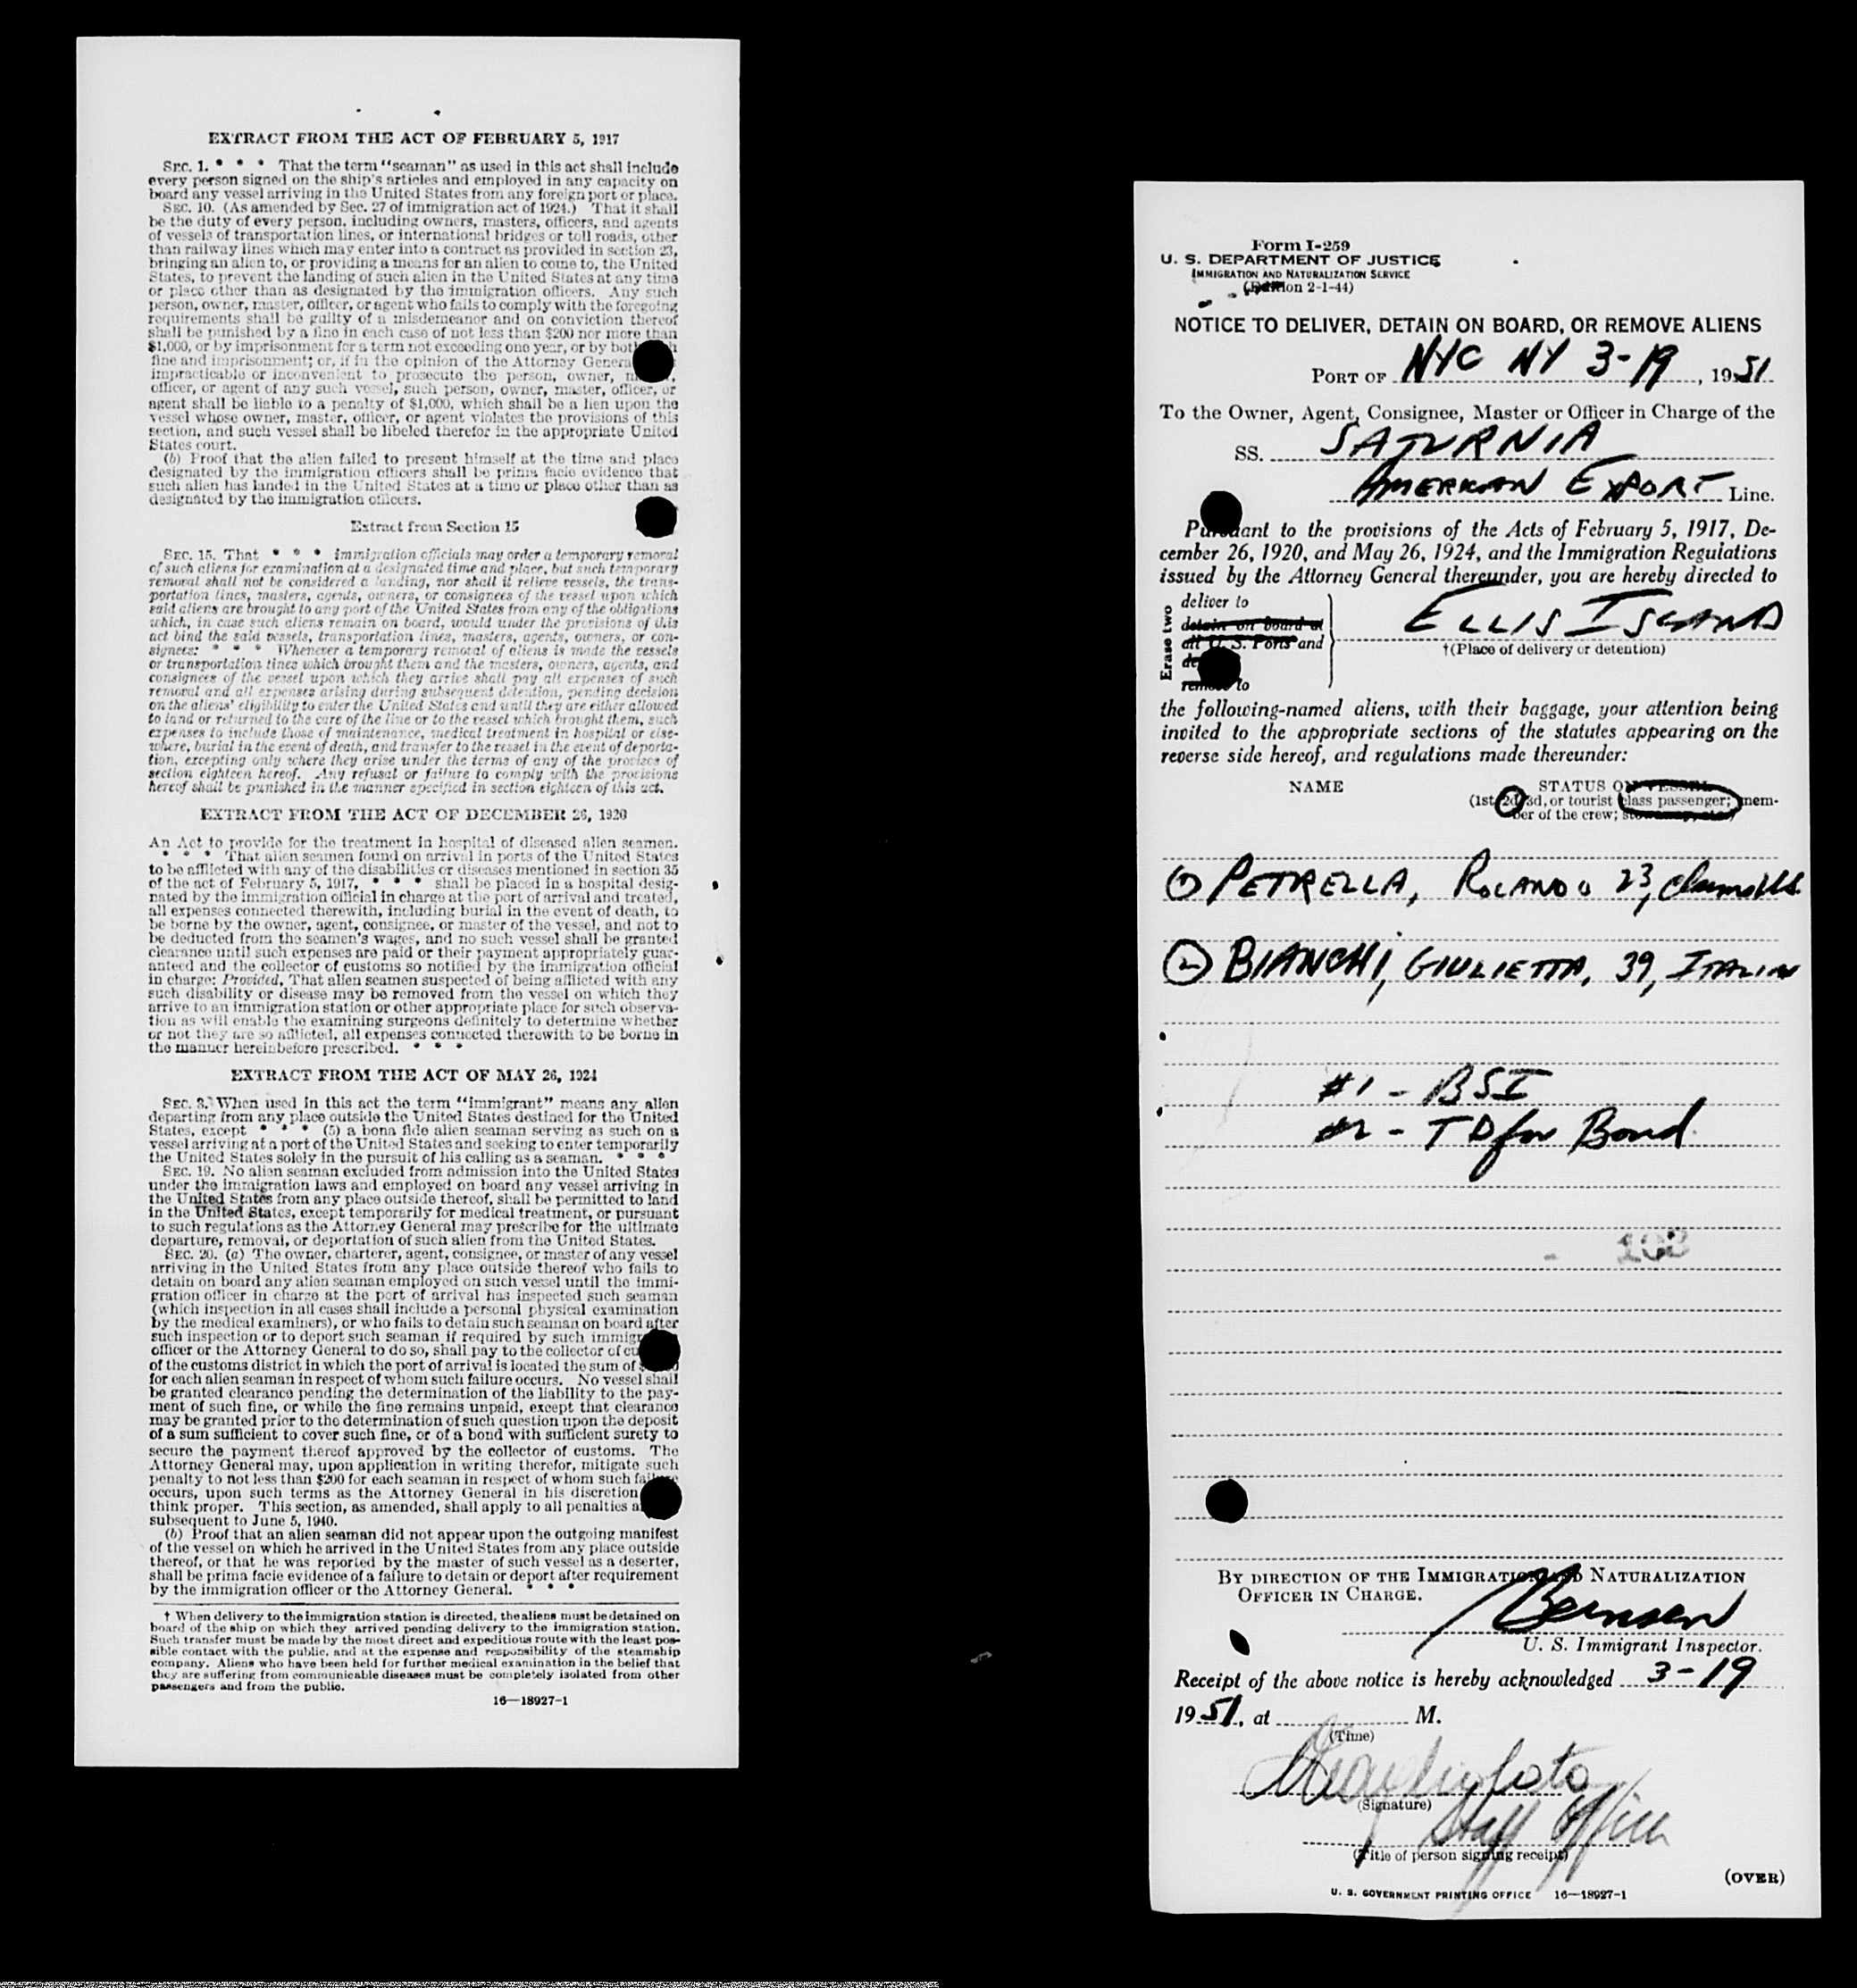 EXTRACT FROM THE ACT OF FEBRUARY 5, 1917
SEC. 1. * * * That the term "seaman" as used in this act shall include
every person signed on the ship's articles and employed in any capacity on
board any vessel arriving in the United States from any foreign port or place.
SEC. 10. (As amended by Sec. 27 of immigration act of 1924.) That it shall
be the duty of every person, including owners, masters, officers, and agents
of vessels of transportation lines, or international bridges or toll roads, other
than railway lines which may enter into a contract as provided in section 23,
bringing an alien to, or providing a means for an alien to come to, the United
States, to prevent the landing of such alien in the United States at any time
or place other than as designated by the immigration officers. Any such
person, owner, master, officer, or agent who fails to comply with the foregoing
requirements shall be guilty of a misdemeanor and on conviction thereof
shall be punished by a fine in each case of not less than $200 nor more than
$1,000, or by imprisonment for a term not exceeding one year, or by both
fine and imprisonment; or, if in the opinion of the Attorney General
impracticable or inconvenient to prosecute the person, owner,
officer, or agent of any such vessel, such person, owner, master, officer, or
agent shall be liable to a penalty of $1,000, which shall be a lien upon the
vessel whose owner, master, officer, or agent violates the provisions of this
section, and such vessel shall be libeled therefor in the appropriate United
States court.
(b) Proof that the alien failed to present himself at the time and place
designated by the immigration officers shall be prima facie evidence that
such alien has landed in the United States at a time or place other than as
designated by the immigration officers.
Extract from Section 15
SEC. 15. That * * * immigration officials may order a temporary removal
of such aliens for examination at a designated time and place, but such temporary
removal shall not be considered a landing, nor shall it relieve vessels, the trans-
portation lines, masters, agents, owners, or consignees of the vessel upon which
said aliens are brought to any port of the United States from any of the obligations
which, in case such aliens remain on board, would under the provisions of this
act bind the said vessels, transportation lines, masters, agents, owners, or con-
signees: * * * Whenever a temporary removal of aliens is made the vessels
or transportation lines which brought them and the masters, owners, agents, and
consignees of the vessel upon which they arrive shall pay all expenses of such
removal and all expenses arising during subsequent detention, pending decision
on the aliens' eligibility to enter the United States and until they are either allowed
to land or returned to the care of the line or to the vessel which brought them, such
expenses to include those of maintenance, medical treatment in hospital or else-
where, burial in the event of death, and transfer to the vessel in the event of deporta-
tion, excepting only where they arise under the terms of any of the provisos of
section eighteen hereof. Any refusal or failure to comply with the provisions
hereof shall be punished in the manner specified in section eighteen of this act.
EXTRACT FROM THE ACT OF DECEMBER 26, 1920
An Act to provide for the treatment in hospital of diseased alien seamen.
* * * That alien seamen found on arrival in ports of the United States
to be afflicted with any of the disabilities or diseases mentioned in section 35
of the act of February 5, 1917, * * * shall be placed in a hospital desig-
nated by the immigration official in charge at the port of arrival and treated,
all expenses connected therewith, including burial in the event of death, to
be borne by the owner, agent, consignee, or master of the vessel, and not to
be deducted from the seamen's wages, and no such vessel shall be granted
clearance until such expenses are paid or their payment appropriately guar-
anteed and the collector of customs so notified by the immigration official
in charge: Provided, That alien seamen suspected of being afflicted with any
such disability or disease may be removed from the vessel on which they
arrive to an immigration station or other appropriate place for such observa-
tion as will enable the examining surgeons definitely to determine whether
or not they are so afflicted, all expenses connected therewith to be borne in
the manner hereinbefore prescribed. * * *
EXTRACT FROM THE ACT OF MAY 26, 1924
SEC. 3. When used in this act the term "immigrant" means any alien
departing from any place outside the United States destined for the United
States, except * * * (5) a bona fide alien seaman serving as such on a
vessel arriving at a port of the United States and seeking to enter temporarily
the United States solely in the pursuit of his calling as a seaman. * * *
SEC. 19. No alien seaman excluded from admission into the United States
under the immigration laws and employed on board any vessel arriving in
the United States from any place outside thereof, shall be permitted to land
in the United States, except temporarily for medical treatment, or pursuant
to such regulations as the Attorney General may prescribe for the ultimate
departure, removal, or deportation of such alien from the United States.
SEC. 20. (a) The owner, charterer, agent, consignee, or master of any vessel
arriving in the United States from any place outside thereof who fails to
detain on board any alien seaman employed on such vessel until the immi-
gration officer in charge at the port of arrival has inspected such seaman
(which inspection in all cases shall include a personal physical examination
by the medical examiners), or who fails to detain such seaman on board after
such inspection or to deport such seaman if required by such
officer or the Attorney General to do so, shall pay to the collector of
of the customs district in which the port of arrival is located the sum of
for each alien seaman in respect of whom such failure occurs. No vessel shall
be granted clearance pending the determination of the liability to the pay-
ment of such fine, or while the fine remains unpaid, except that clearance
may be granted prior to the determination of such question upon the deposit
of a sum sufficient to cover such fine, or of a bond with sufficient surety to
secure the payment thereof approved by the collector of customs. The
Attorney General may, upon application in writing therefor, mitigate such
penalty to not less than $200 for each seaman in respect of whom such failure
occurs, upon such terms as the Attorney General in his discretion
think proper. This section, as amended, shall apply to all penalties
subsequent to June 5, 1940.
(b) Proof that an alien seaman did not appear upon the outgoing manifest
of the vessel on which he arrived in the United States from any place outside
thereof, or that he was reported by the master of such vessel as a deserter,
shall be prima facie evidence of a failure to detain or deport after requirement
by the immigration officer or the Attorney General. * * *
† When delivery to the immigration station is directed, the aliens must be detained on
board of the ship on which they arrived pending delivery to the immigration station.
Such transfer must be made by the most direct and expeditious route with the least pos-
sible contact with the public, and at the expense and responsibility of the steamship
company. Aliens who have been held for further medical examination in the belief that
they are suffering from communicable diseases must be completely isolated from other
passengers and from the public.
16—18927-1
Form I-259
U. S. DEPARTMENT OF JUSTICE
IMMIGRATION AND NATURALIZATION SERVICE
(Edition 2-1-44)
NOTICE TO DELIVER, DETAIN ON BOARD, OR REMOVE ALIENS
PORT OF NYC NY 3-19, 1951
To the Owner, Agent, Consignee, Master or Officer in Charge of the
SS. SATURNIA
AMERICAN EXPORT Line.
Pursuant to the provisions of the Acts of February 5, 1917, De-
cember 26, 1920, and May 26, 1924, and the Immigration Regulations
issued by the Attorney General thereunder, you are hereby directed to
Erase two
deliver to
detain on board at
all U. S. Ports and
remove to
ELLIS ISLAND
†(Place of delivery or detention)
the following-named aliens, with their baggage, your attention being
invited to the appropriate sections of the statutes appearing on the
reverse side hereof, and regulations made thereunder:
NAME STATUS ON VESSEL
(1st, 2d, 3d, or tourist class passenger; mem-
ber of the crew; stowaway, etc.)
① PETRELLA, ROLANDO 23, Claims US.
② BIANCHI, GIULIETTA, 39, ITALIAN
#1 - BSI
#2 - TD for Bond
103
BY DIRECTION OF THE IMMIGRATION AND NATURALIZATION
OFFICER IN CHARGE.
U. S. Immigrant Inspector.
Receipt of the above notice is hereby acknowledged 3-19
1951, at M.
(Time)
(Signature)
Staff Officer
(Title of person signing receipt)
(OVER)
U. S. GOVERNMENT PRINTING OFFICE 16—18927-1